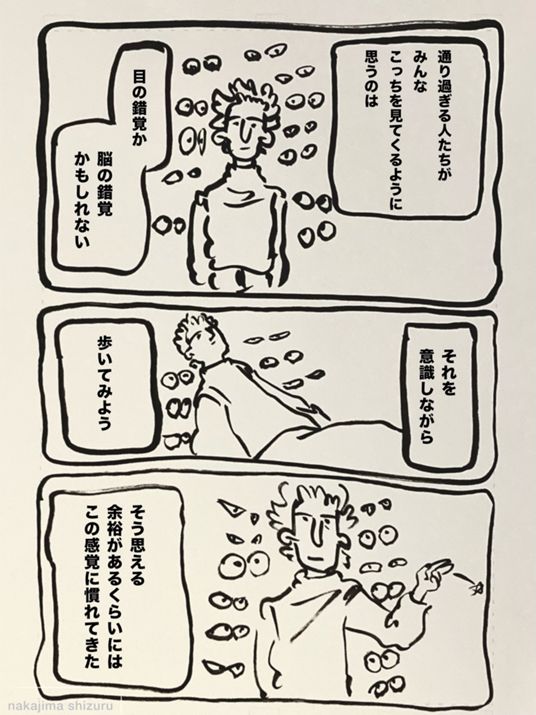 通り過ぎる人たちが
みんな
こっちを見てくるように
思うのは
目の錯覚か
脳の錯覚
かもしれない
それを
意識しながら
歩いてみよう
そう思える
余裕があるくらいには
この感覚に慣れてきた
nakajima shizuru